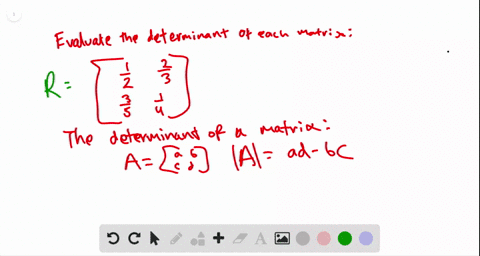 Evaluate the determinant of each matrix:
R = [ 1/2 2/3
3/5 1/4 ]
The determinant of a matrix:
A = [ a b
c d ] |A| = ad - bc